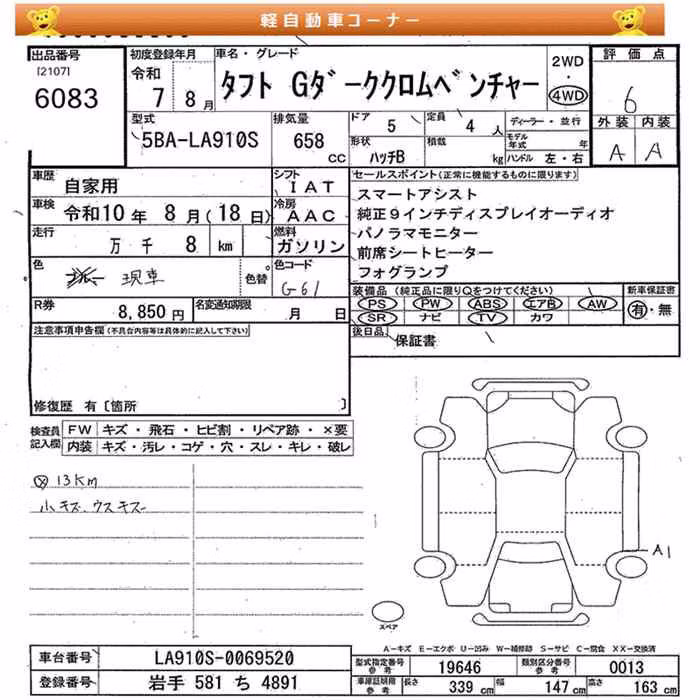 軽自動車コーナー
出品番号
[2107]
6083
初度登録年月
令和
7 8月
車名・グレード
タフト Gダーククロムベンチャー
2WD
・
4WD
評価点
6
外装 内装
A A
型式
5BA-LA910S
排気量
658
cc
ドア
5
定員
4 人
ディーラー・並行
形状
ハッチB
積載
kg
モデル年式 年
ハンドル 左・右
車歴
自家用
シフト
IAT
車検
令和10年 8月(18日)
冷房
AAC
走行
万 千 8 km
燃料
ガソリン
色
現車
色替
色コード
G61
R券
8,850円
名変通知期限
月 日
セールスポイント(正常に機能するものに限ります)
スマートアシスト
純正9インチディスプレイオーディオ
パノラマモニター
前席シートヒーター
フォグランプ
装備品(純正品に限りQをつけてください)
PS PW ABS エアB AW
SR ナビ TV カワ
新車保証書
有・無
後日品
保証書
注意事項申告欄(不具合内容等は具体的に記入して下さい)
修復歴 有〔箇所 〕
検査員
記入欄
FW キズ・飛石・ヒビ割・リペア跡・×要
内装 キズ・汚レ・コゲ・穴・スレ・キレ・破レ
13KM
小キズ、ウスキズ
A1
スペア
A-キズ E-エクボ U-凹み W-補修跡 S-サビ C-腐食 XX-交換済
車台番号
LA910S-0069520
登録番号
岩手 581 ち 4891
型式指定番号
参考
19646
類別区分番号
参考
0013
車庫証明用
参考
長さ 339 cm 幅 147 cm 高さ 163 cm